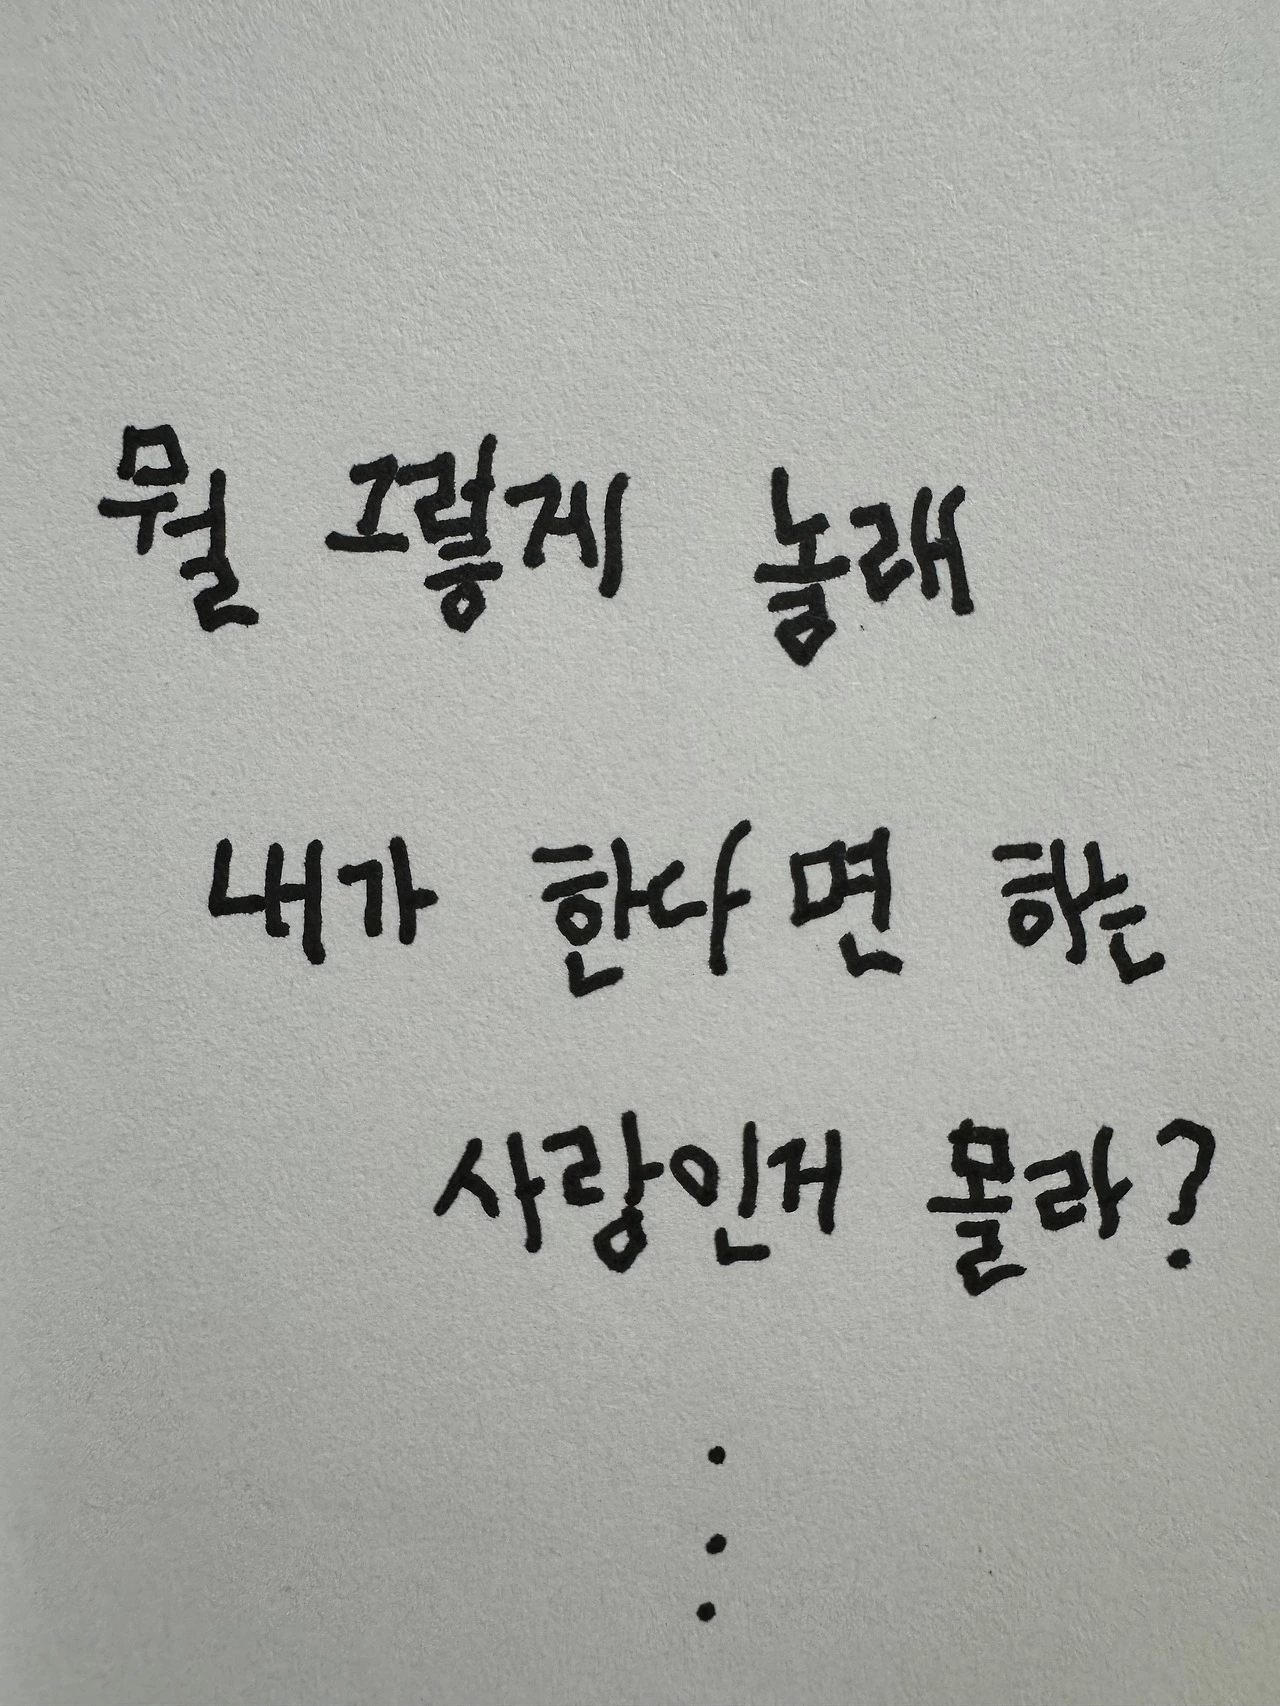 뭘 그렇게 놀래
내가 한다면 하는
사랑인거 몰라?
.
.
.